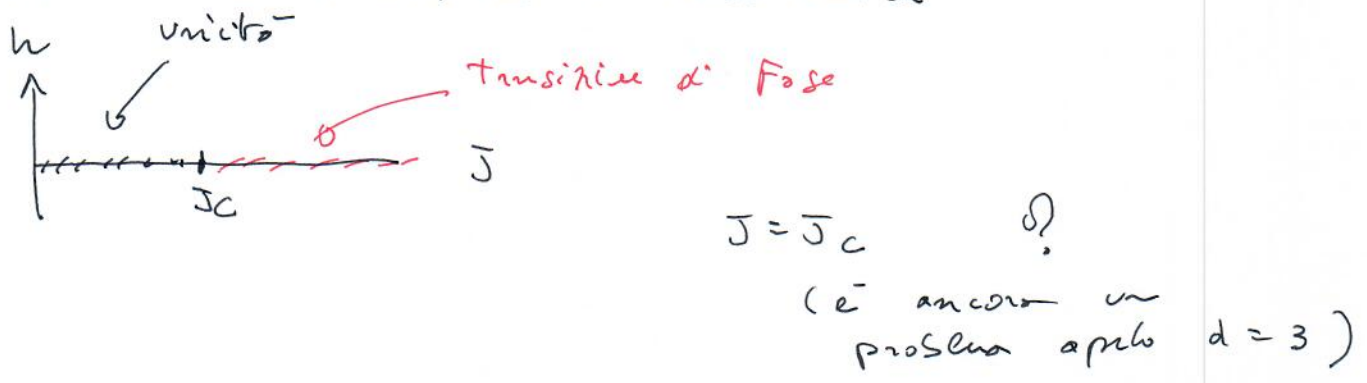 h
unicità
transizione di Fase
J
Jc
J = Jc ?
(è ancora un
problema aperto d = 3)